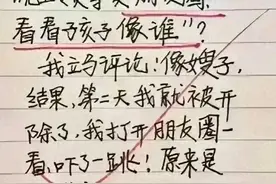 看看孩子像谁"?
我立马评论:像嫂子,
结果,第二天我就被开
除了,我打开朋友圈一
看,吓了一跳!原来是